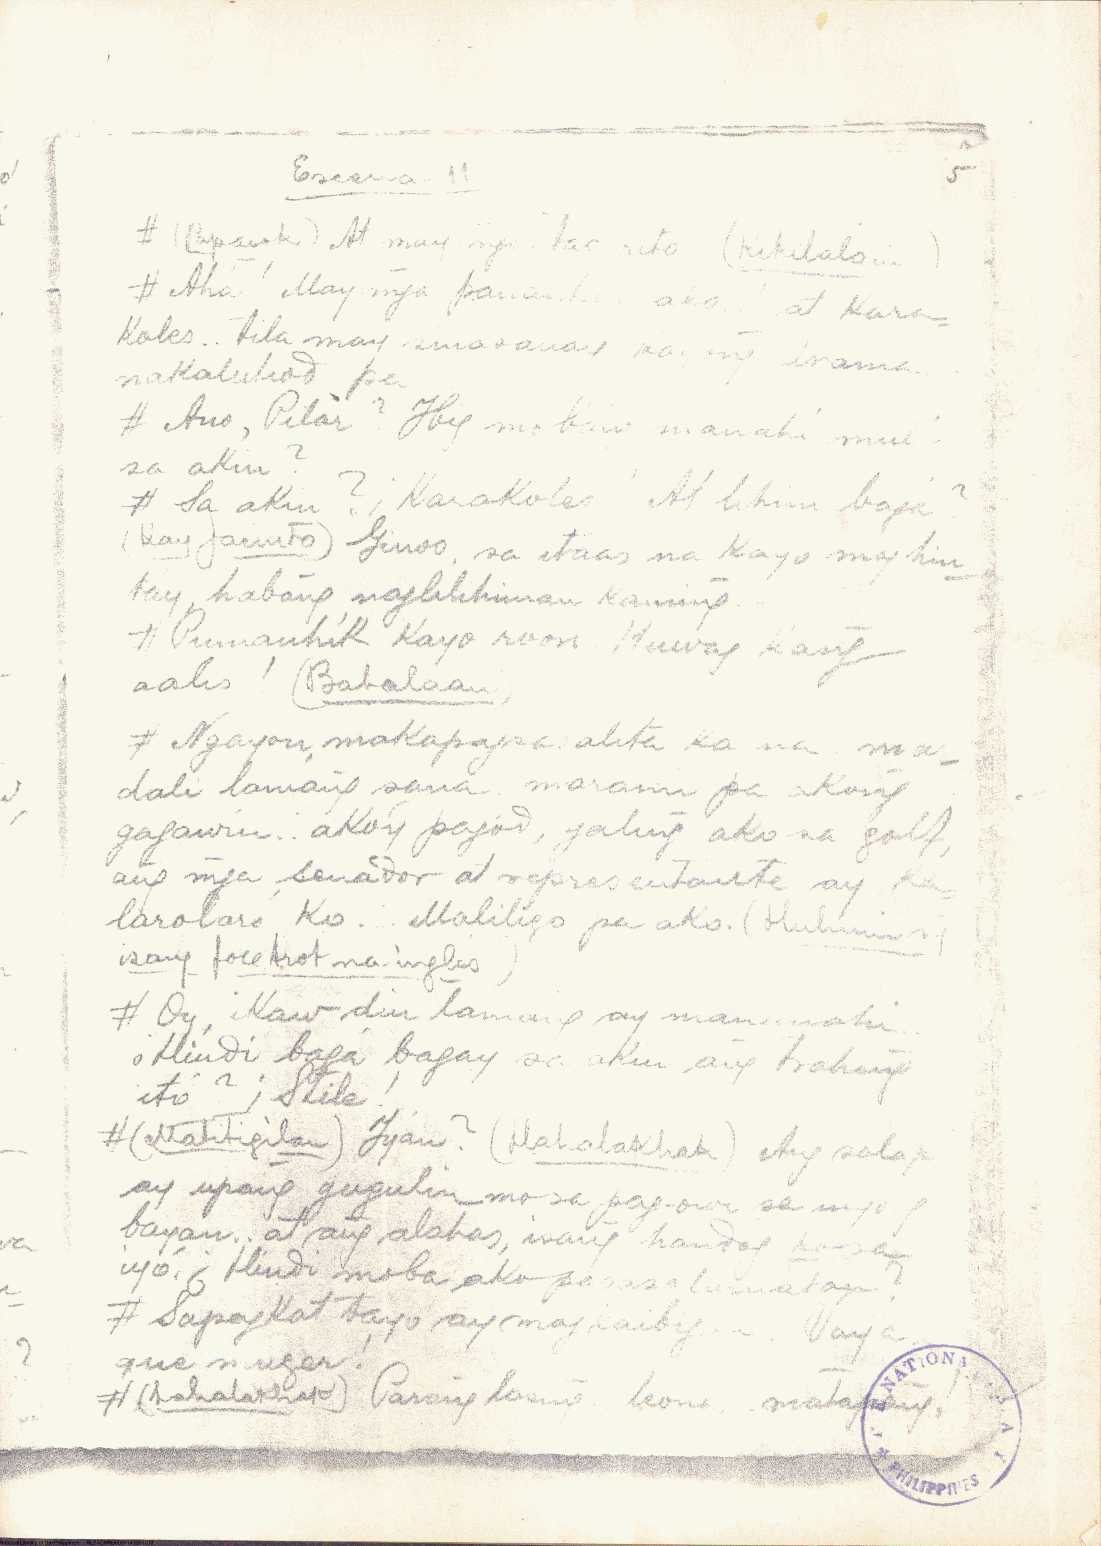 Escena 11
5
# (Papasok) At may mga tao rito (Kikilalanin)
# Ahá! May mga panauhin ako! at Kara-
koles.. tila may
nakaluhod pa
# Ano, Pilar? Ibig mo bang
sa akin?
# Sa akin? ¡Karakoles! At lihim bagá?
(Kay Jacinto) Ginoo, sa itaas na kayo maghin
tay, habang naglilihiman kaming
# Pumanhik kayo roon. Huwag kang
aalis! (Babalaan)
# Ngayon, makapagsasalita ka na. ma-
dali lamang sana. marami pa akong
gagawin.. ako'y pagod, galing ako sa golf,
ang mga senador at representante ay ka-
larolaro ko... Maliligo pa ako. (Huhuning
isang foxtrot na inglés)
# Oy, ikaw din lamang ay
¿Hindi bagá bagay sa akin ang traheng
itó? ¡Stile!
# (Matitigilan) Iyan? (Hahalakhak) Ang salapi
ay upang gugulin mo sa pag-owi sa inyong
bayan.. at ang alahas, isang handog ko sa
iyó. ¿Hindi mo ba ako pasasalamatan?
# Sapagkat tayo ay magkaibigan. Vaya
que muger!
# (hahalakhak) Parang leona. matapang!
NATIONAL
PHILIPPINES